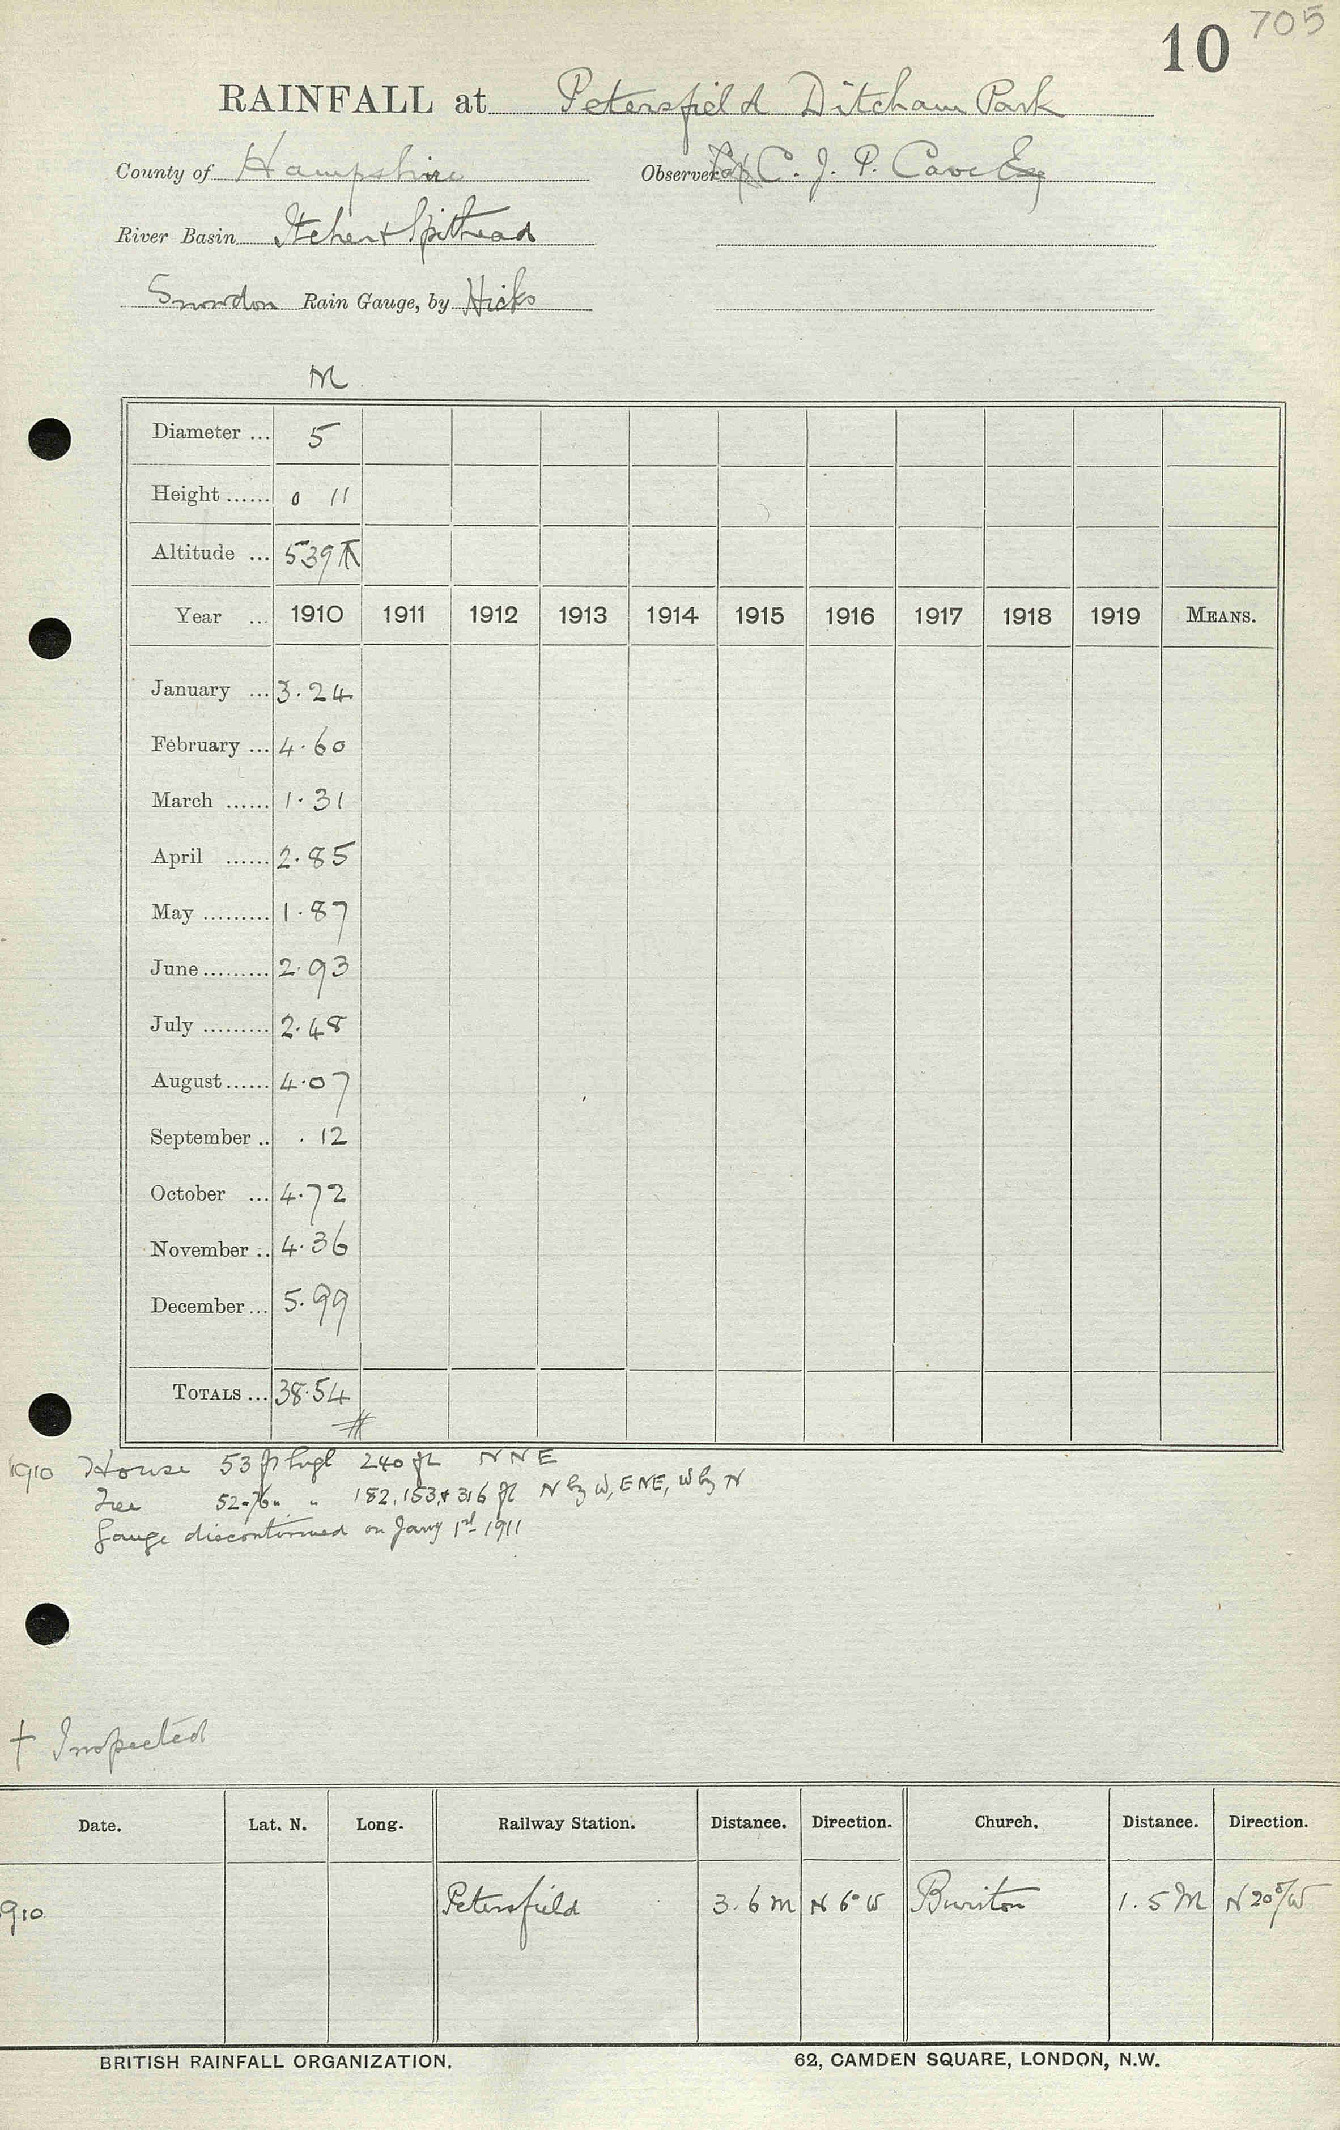 705
10
RAINFALL at Petersfield Ditcham Park
County of Hampshire Observer Cap C. J. P. Cave Esq
River Basin Itchen & Spithead
Snowdon Rain Gauge, by Hicks
M
Diameter ... 5
Height ...... 0 11
Altitude ... 539
Year ... 1910 1911 1912 1913 1914 1915 1916 1917 1918 1919 MEANS.
January ... 3.24
February ... 4.60
March ...... 1.31
April ...... 2.85
May ......... 1.87
June ......... 2.93
July ......... 2.48
August ...... 4.07
September .. .12
October ... 4.72
November .. 4.36
December ... 5.99
TOTALS ... 38.54
1910 House 53 ft high 240 ft NNE
Tree 52-76 " 182, 153, & 316 ft N by W, ENE, W by N
Gauge discontinued on Jany 1st 1911
† Inspected
Date. Lat. N. Long. Railway Station. Distance. Direction. Church. Distance. Direction.
1910 Petersfield 3.6 m N 6° W Buriton 1.5 M N 20° W
BRITISH RAINFALL ORGANIZATION. 62, CAMDEN SQUARE, LONDON, N.W.